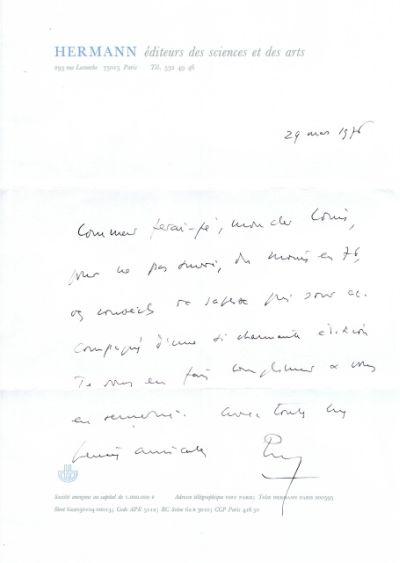 HERMANN éditeurs des sciences et des arts
293 rue Lecourbe 75015 Paris Tél. 532 49 46
29 mars 1976
Comment ferai-je, mon cher Louis,
pour ne pas suivre, du moins en 76,
vos conseils de sagesse qui sont ac-
compagnés d'une si charmante édition
Je vous en fais compliment & vous
en remercie. Avec toutes mes
pensées amicales
Société anonyme au capital de 1.000.000 F Adresse télégraphique PARIS; Telex HERMANN PARIS 200595
Siret CCP Paris 416 50